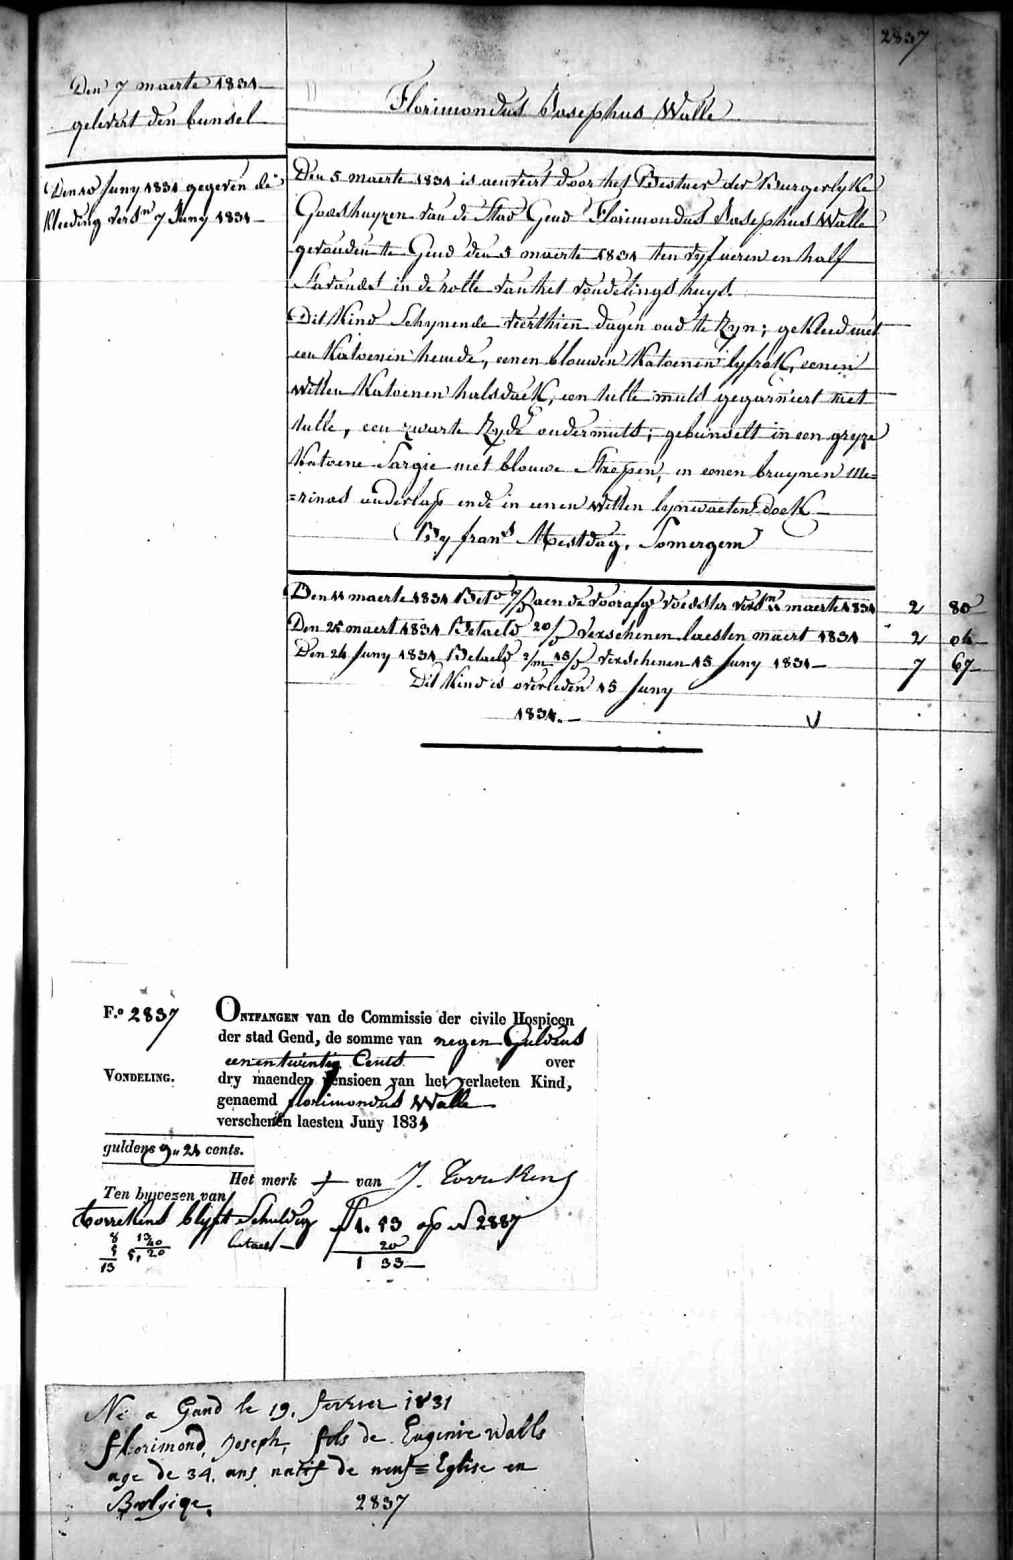 2837
Den 7 maerte 1831
gelevert den bunsel
Florimondus Josephus Walle
Den 10 Juny 1831 gegeven de
kleeding versn 7 Juny 1831
Den 5 maerte 1831 is aenveert door het Bestuer der Burgerlyke
Godshuyzen van de Stad Gend Florimondus Josephus Walle
gevonden te Gend den 5 maerte 1831 ten vyf ueren en half
s'avonds in de rolle van het vondelings huys.
Dit Kind Schynende veerthien dagen oud te Zyn; gekleed met
een Katoenen hemde, eenen blouwen Katoenen lyfrok, eenen
witten Katoenen halsdoek, een tulle muts gegarniert met
tulle, een zwarte Zyde ondermuts; gebunselt in een gryze
Katoene Sargie met blouwe Strepen, en eenen bruynen me=
=rinos onderlap ende in eenen witten lynwaeten doek
By frans Mestdag, Somergem
Den 11 maerte 1831 Beto aen de voorafge voedster versn maerte 1831 2 80
Den 25 maert 1831 Betaeld 20/D verschenen laesten maert 1831 2 04
Den 24 Juny 1831 Betaeld 2/m 15/D verschenen 15 Juny 1831 7 67
Dit Kind is overleden 15 Juny
1831.
F.o 2837
ONTFANGEN van de Commissie der civile Hospicen
der stad Gend, de somme van negen Guldens
eenentwintig Cents over
VONDELING.
dry maenden pensioen van het verlaeten Kind,
genaemd florimondus Walle
verschenen laesten Juny 1831
guldens 9,, 21 cents.
Het merk + van J. Torrekens
Ten bywezen van
Torrekens blyft Schuldig 1. 53 op N 2887
8 13
5 5, 20
13
20
1 33
Né a Gand le 19. fevrier 1831
florimond, Joseph, fils de Eugenie Walle
age de 34. ans natif de neuf=Eglise en
Belgiqe.
2837